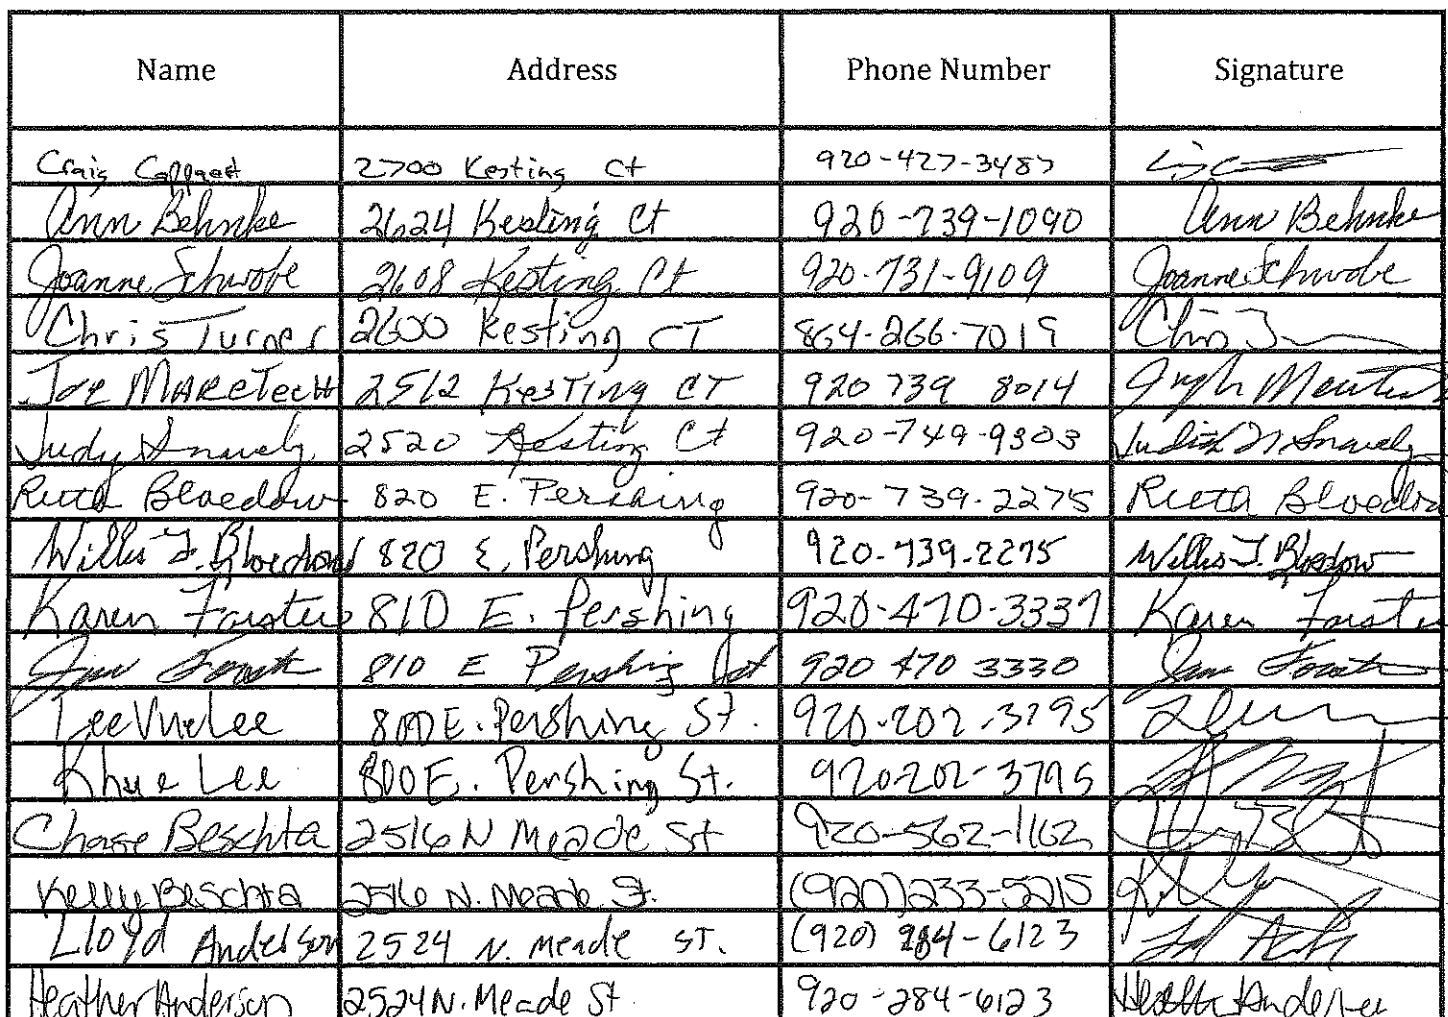 Name Address Phone Number Signature
Craig 2700 Kesting Ct 920-427-3487
Ann Behnke 2624 Kesting Ct 920-739-1090 Ann Behnke
Joanne Schwobe 2608 Kesting Ct 920-731-9109 Joanne Schwobe
Chris Turner 2600 Kesting CT 864-266-7019 Chris
Joe MARCTecH 2512 KesTing CT 920 739 8014
Judy Snavely 2520 Kesting Ct 920-749-9303 Judith Snavely
Ruth Bloedow 820 E. Pershing 920-739-2275 Ruth Bloedow
Willis J. Bloedow 820 E. Pershing 920-739-2275 Willis J. Bloedow
Karen Forster 810 E. Pershing 920-470-3337 Karen Forster
Jim 810 E Pershing 920 470 3330 Jim
Lee Vue Lee 800 E. Pershing St. 920-202-3795
Khue Lee 800 E. Pershing St. 920-202-3795
Chase Beschta 2516 N Meade St 920-562-1162
Kelly Beschta 2516 N. Meade St. (920) 233-5215
Lloyd Anderson 2524 N. Meade ST. (920) 284-6123
Heather Anderson 2524 N. Meade St 920-284-6123 Heather Anderson